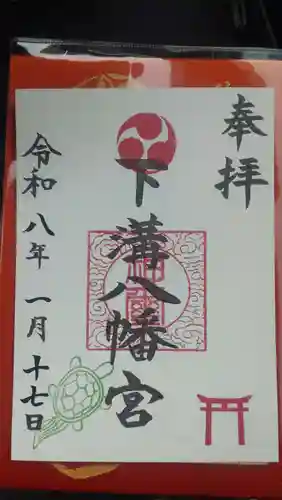 奉拝
下溝八幡宮
令和八年 一月 十七日